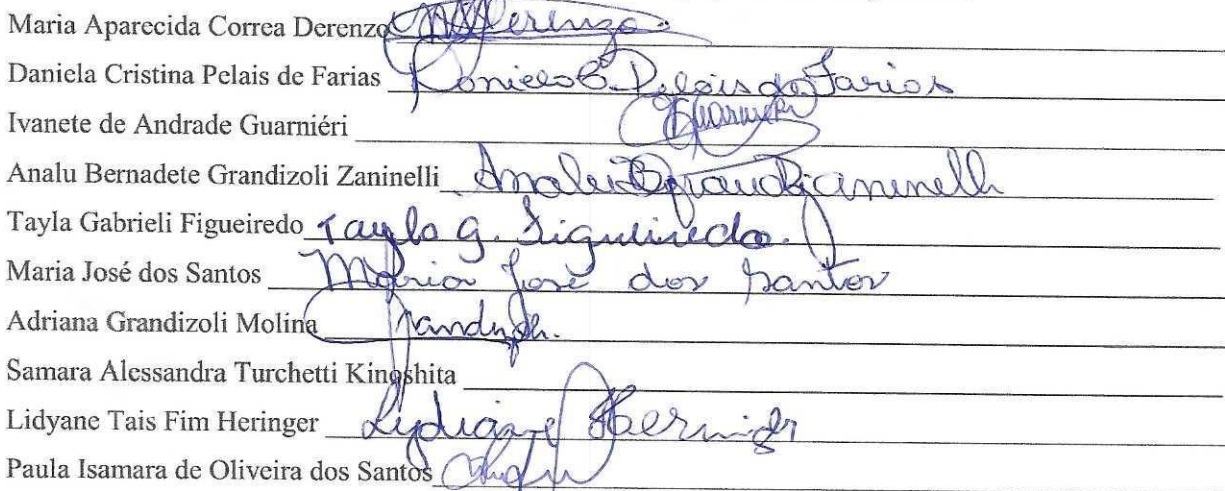 Maria Aparecida Correa Derenzo MDerenzo.
Daniela Cristina Pelais de Farias Daniela C. Pelais de Farias
Ivanete de Andrade Guarniéri Guarnieri
Analu Bernadete Grandizoli Zaninelli Analu B Grandizaninelli
Tayla Gabrieli Figueiredo Tayla G. Figueiredo.
Maria José dos Santos Maria José dos Santos
Adriana Grandizoli Molina
Samara Alessandra Turchetti Kinoshita
Lidyane Tais Fim Heringer Lydiane Heringer
Paula Isamara de Oliveira dos Santos